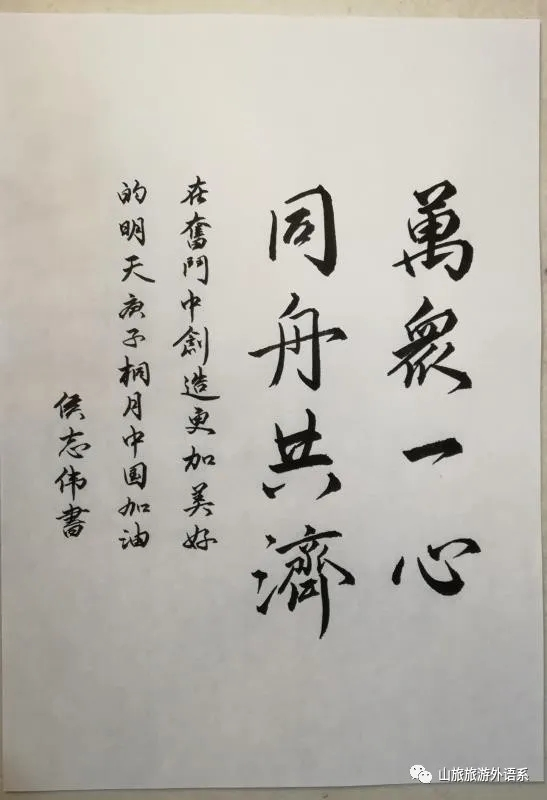 萬眾一心
同舟共濟
在奮鬥中創造更加美好
的明天庚子桐月中国加油
侯志伟書
山旅旅游外语系